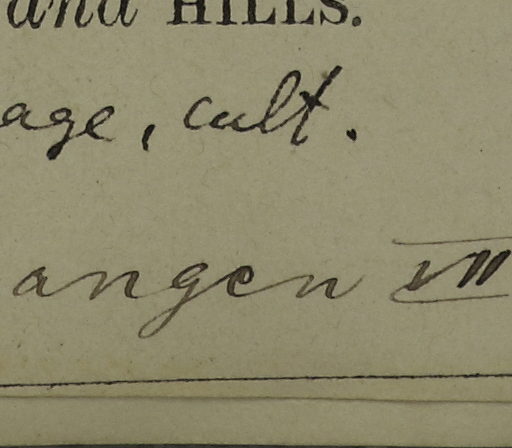 and HILLS.
age, cult.
angen VII